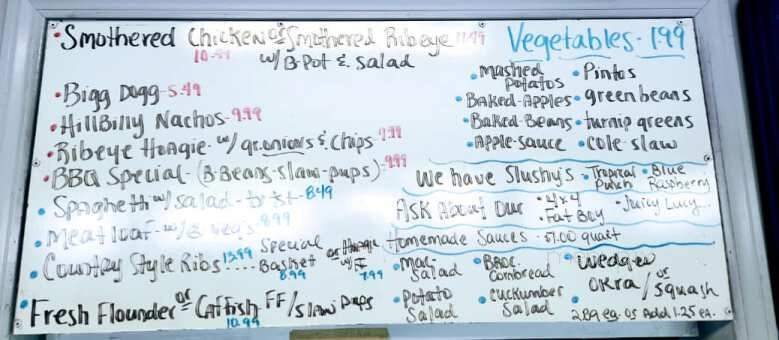 •Smothered Chicken or Smothered Ribeye 11.99
10.99 w/ B-Pot & Salad
•Bigg Dogg - 5.49
•HillBilly Nachos - 9.99
•Ribeye Hoagie - w/ gr.onions & Chips 9.99
•BBQ Special - (B-Beans-slaw-pups) - 9.99
•Spaghetti w/ salad - to tst - 8.49
•Meatloaf - w/ 8.99
•Country Style Ribs 13.99 .... Special Basket 8.99 or Hoagie w/ FF 7.99
•Fresh Flounder or Catfish FF/slaw pups
10.99
Vegetables - 1.99
•mashed Potatos •Pintos
•Baked-Apples •green beans
•Baked-Beans •turnip greens
•Apple-sauce •cole slaw
We have Slushy's •Tropical Punch •Blue Raspberry
Ask About Our •4x4 •Juicy Lucy...
•Fat Boy
Homemade Sauces - $7.00 quart
•mac-Salad •Broc. Cornbread •Wedges
•Potato Salad •Cuckumber Salad •Okra/or Squash
2.89 ea. or Add 1.25 ea.